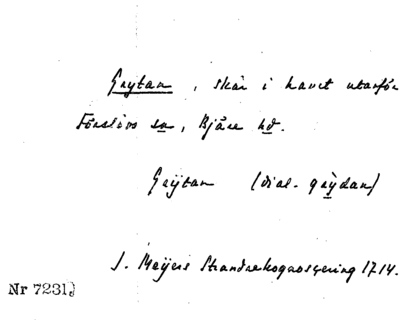 Grytan, skär i havet utanför
Förslövs sn, Bjäre hd.
Grÿtan (dial. grỳdan)
J. Meijers Strandrekognoscering 1714.
Nr 7231